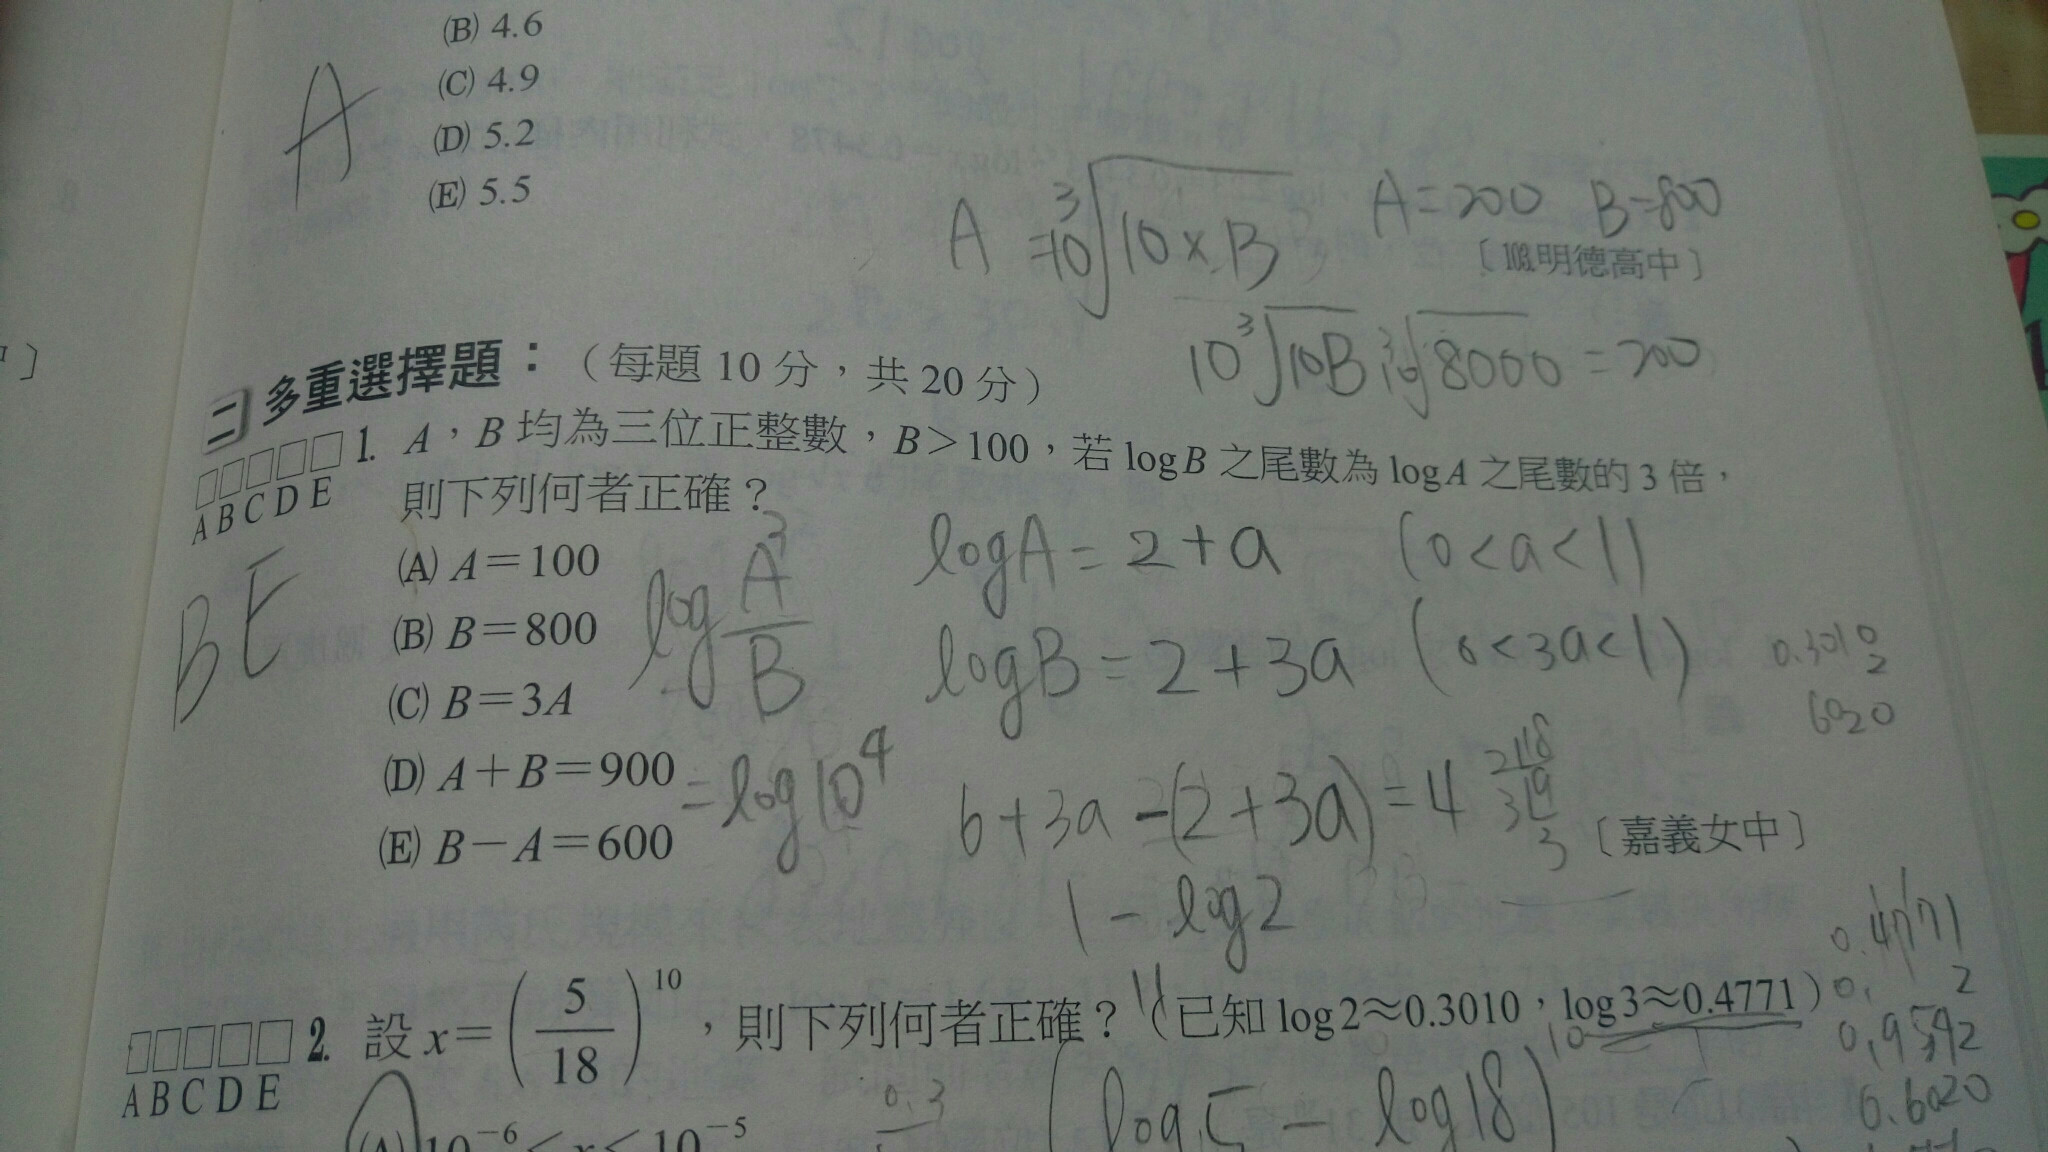 (B) 4.6
(C) 4.9
(D) 5.2
(E) 5.5
A
A = 10∛10×B
A=200 B=800
〔103.明德高中〕
10∛10B 10∛8000 = 200
二 多重選擇題：（每題 10 分，共 20 分）
□□□□□ 1. A，B 均為三位正整數，B＞100，若 log B 之尾數為 log A 之尾數的 3 倍，
ABCDE 則下列何者正確？
(A) A＝100
(B) B＝800
(C) B＝3A
(D) A＋B＝900
(E) B－A＝600
BE
log A³/B
= log10⁴
logA = 2+a (0<a<1)
logB = 2+3a (0<3a<1)
6+3a-(2+3a)=4
0.3010
2
6020
2|18
3|9
3
〔嘉義女中〕
1-log2
□□□□□ 2. 設 x＝(5/18)¹⁰，則下列何者正確？（已知 log2≈0.3010，log3≈0.4771）
ABCDE
0.4771
2
0.9542
0.6020
(log5 - log18)
10
0.3
(A) 10⁻⁶＜x＜10⁻⁵